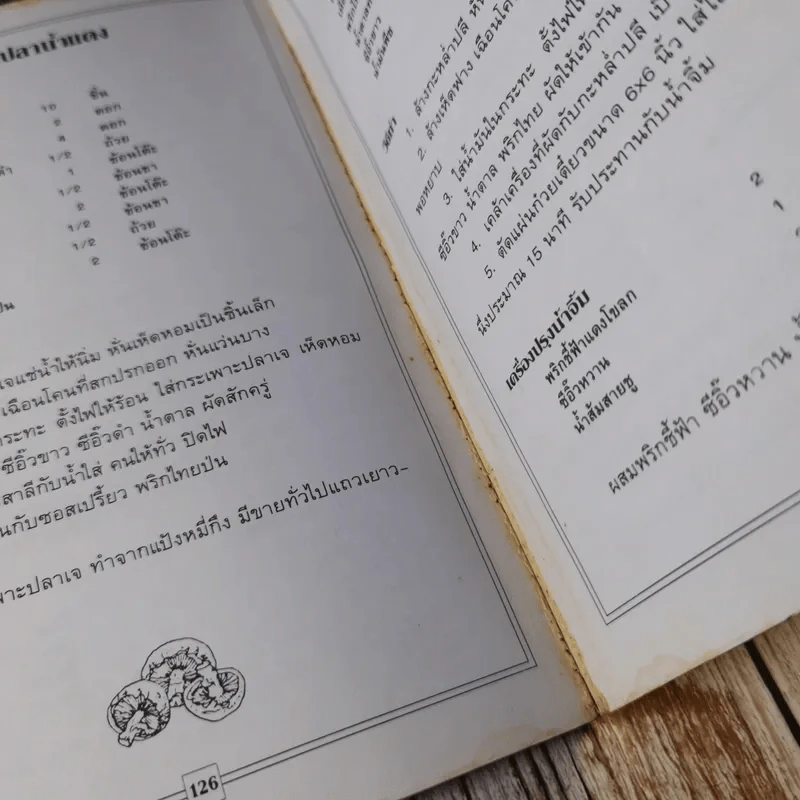 ปลาน้ำแดง
10 ชิ้น
2 ดอก
4 ดอก
1/2 ถ้วย
1 ช้อนชา
1/2 ช้อนโต๊ะ
2 ช้อนชา
1/2 ถ้วย
1/2 ช้อนโต๊ะ
2
เจแช่น้ำให้นิ่ม หั่นเห็ดหอมเป็นชิ้นเล็ก
เฉือนโคนที่สกปรกออก หั่นแว่นบาง
กระทะ ตั้งไฟให้ร้อน ใส่กระเพาะปลาเจ เห็ดหอม
ซีอิ๊วขาว ซีอิ๊วดำ น้ำตาล ผัดสักครู่
สาลีกับน้ำใส่ คนให้ทั่ว ปิดไฟ
นกับซอสเปรี้ยว พริกไทยป่น
พาะปลาเจ ทำจากแป้งหมี่กึง มีขายทั่วไปแถวเยาว-
126
วิธีทำ
1. ล้างกะหล่ำปลี หั่น
2. ล้างเห็ดฟาง เฉือนโค
พอหยาบ
3. ใส่น้ำมันในกระทะ ตั้งไฟให้
ซีอิ๊วขาว น้ำตาล พริกไทย ผัดให้เข้ากัน
4. เคล้าเครื่องที่ผัดกับกะหล่ำปลี เป็
5. ตัดแผ่นก๋วยเตี๋ยวขนาด 6x6 นิ้ว ใส่ไ
นึ่งประมาณ 15 นาที รับประทานกับน้ำจิ้ม
เครื่องปรุงน้ำจิ้ม
พริกชี้ฟ้าแดงโขลก 2
ซีอิ๊วหวาน 1
น้ำส้มสายชู
ผสมพริกชี้ฟ้า ซีอิ๊วหวาน น้